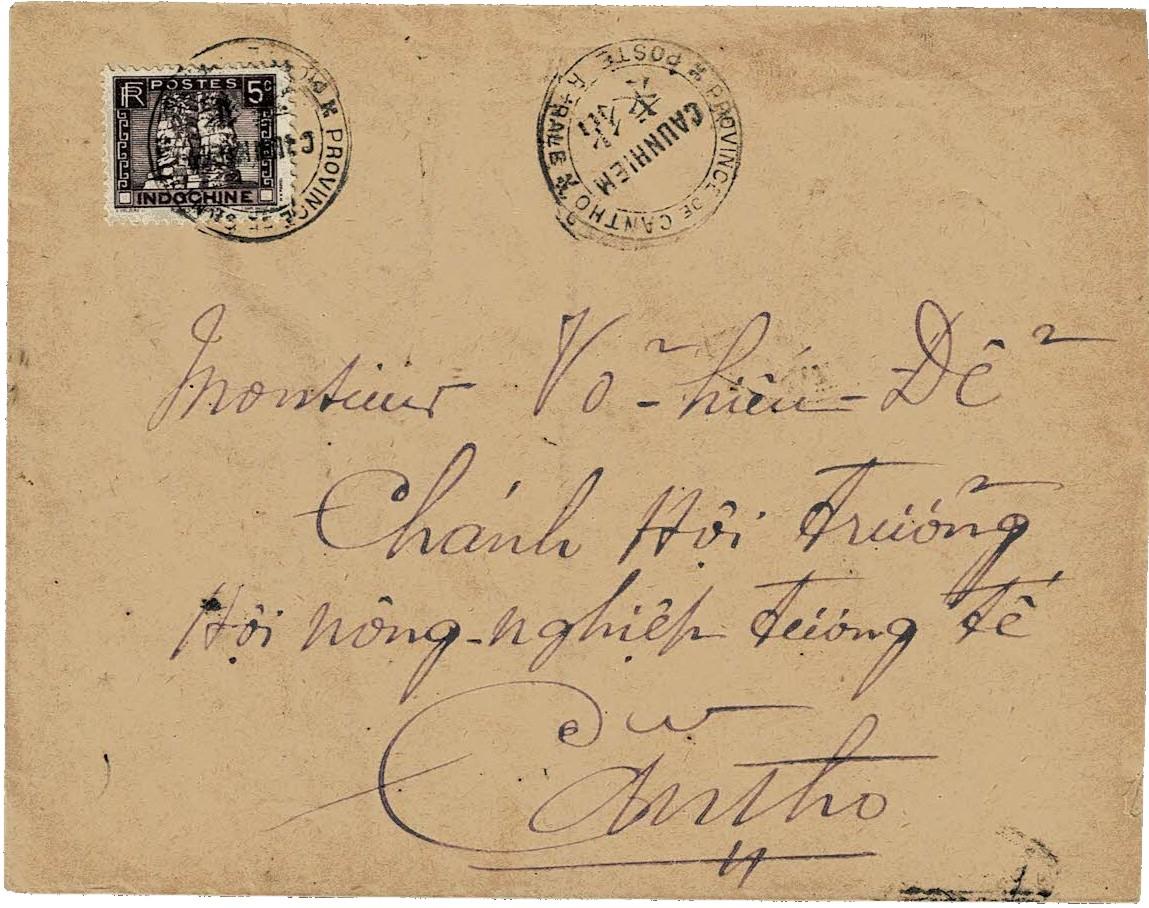 RF POSTES 5c
INDOCHINE
PROVINCE DE
PROVINCE DE CANTHO
POSTE RURALE
CAUNHIEM
Monsieur Võ-hiếu-Đễ
Chánh Hội trưởng
Hội nông-nghiệp tương tế
Cantho